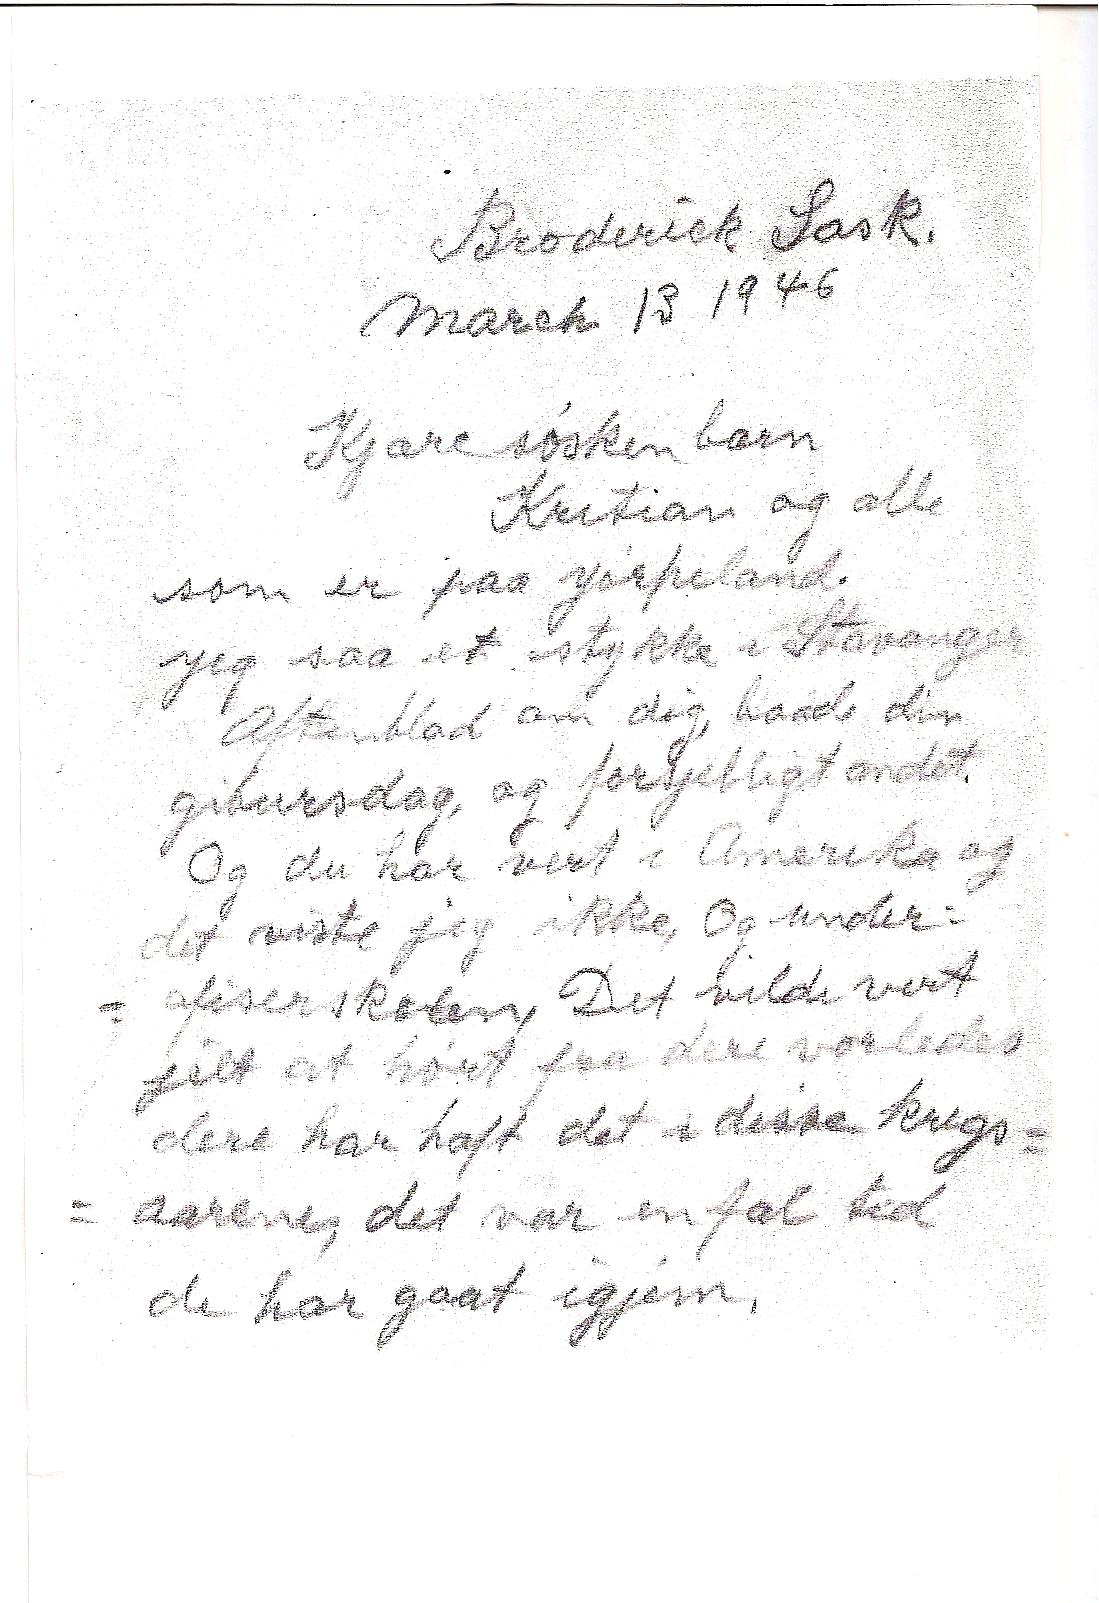 Broderick Sask.
March 13 1946
Kjære søskenbarn
Kristian og alle
som er paa Jørpeland.
Jeg saa et stykke i Stavanger
Aftenblad om dig, baade din
gibursdag, og forsjelligt andet.
Og du har vert i Amerika og
det viste jeg ikke, Og under=
= ofiserskolen, Det vilde vert
jilt at hørt fra dere vorledes
dere har haft det i disse krigs=
= aarene, det var en fæl tid
de har gaat igjem,